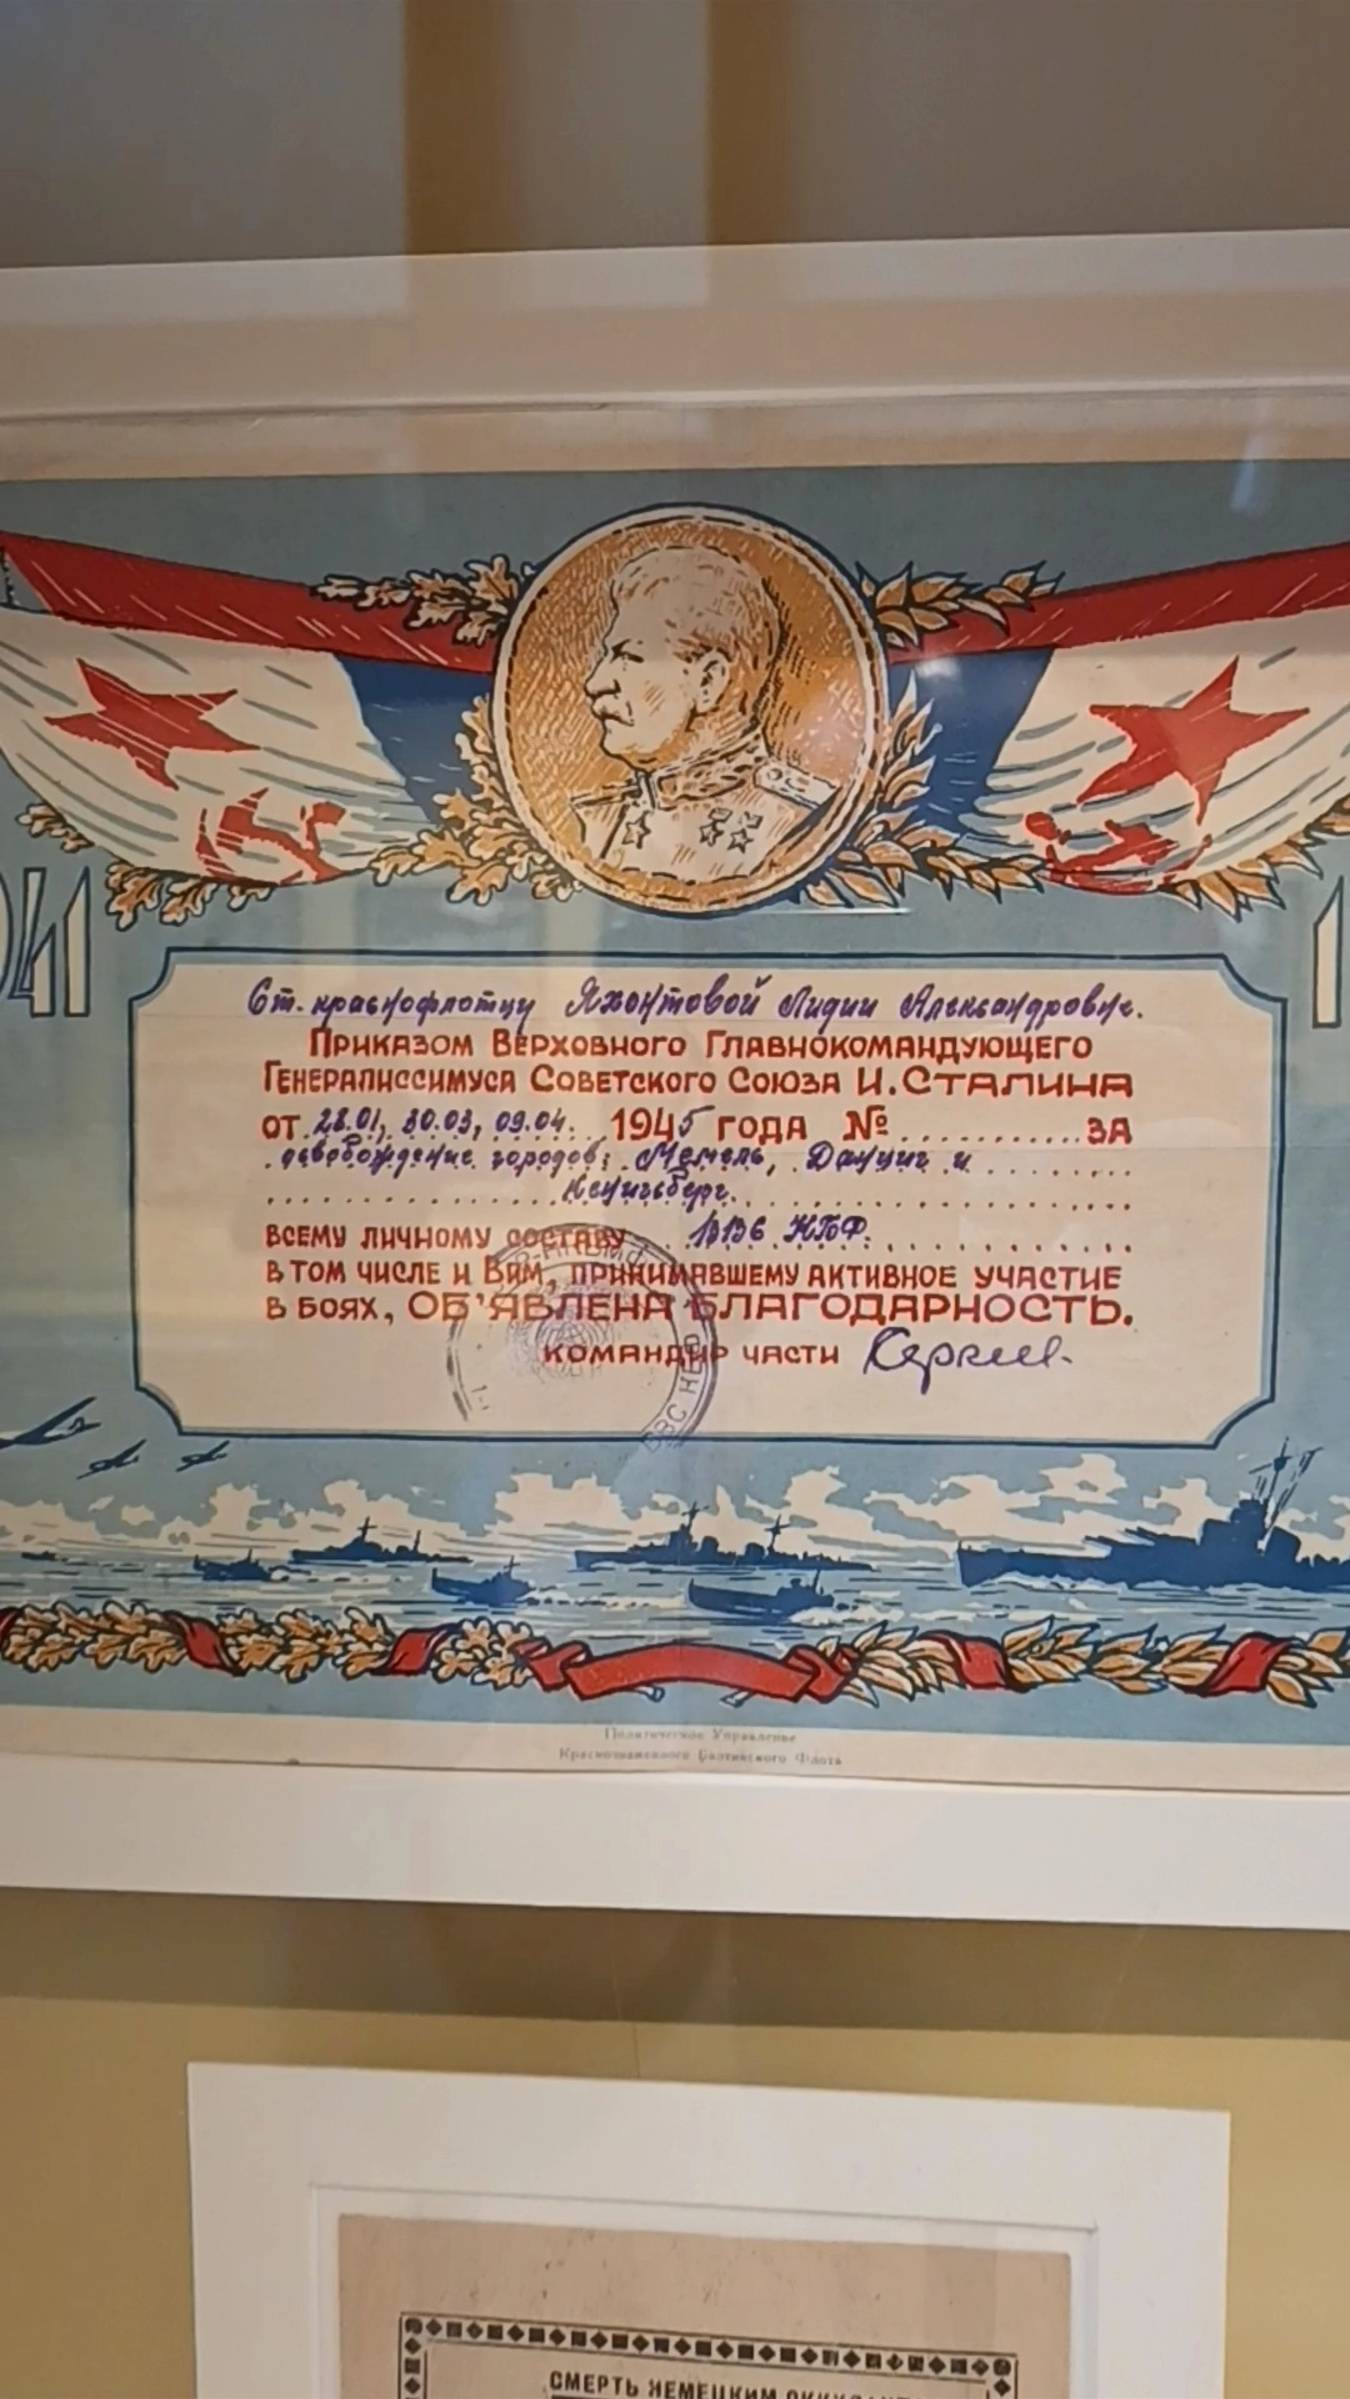 941
1
Ст. краснофлотцу Яхонтовой Лидии Александровне.
Приказом Верховного Главнокомандующего
Генералиссимуса Советского Союза И. Сталина
от 28.01, 30.03, 09.04. 1945 года № ........... за
освобождение городов: Мемель, Данциг и
Кенигсберг.
всему личному составу
в том числе и Вам, принимавшему активное участие
в боях, об'явлена благодарность.
командир части
ВВС
Политическое Управление
Краснознаменного Балтийского Флота
СМЕРТЬ НЕМЕЦКИМ